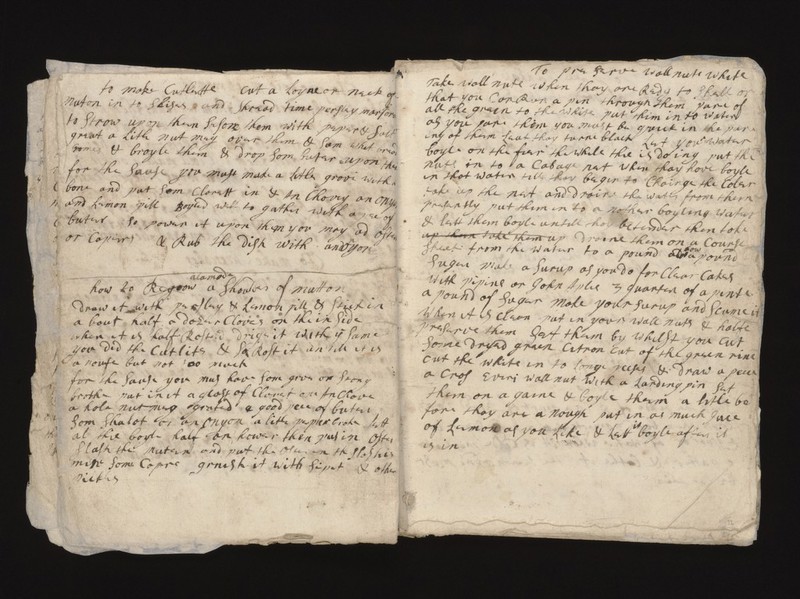 to make Cutlette cut a Loyne or neck of
muton in to Slises and thread time persly marjorm
to Strow upon them Season them with peper & Salt
great a litle nut meg over them & Som whit bread
& broyle them & drop Som buter upon them
for the Sause you must make a litle grove with a
bone and put Som Clarett in & An Chovey an Onyon
and Lemon pill boyled wel to gather with a pece of
buter So power it upon them you may ad Oster
or Capers & Rub the Dish with an Onyon
alamode
how to Ragow a Showlder of mutton
Draw it with persley & Lemon pill & Stick in
a bout half a dozen Cloves on the in Side
when it is half Rosted drige it with the Same
you did the Cutlits & So Rost it an till it is
a nouf but not too much
for the Sause you mus have Som grave or Strong
brothe put in it a glase of Claret an An Chove
a hole nut meg grated a good pece of buter
Som Shalot or an Onyon a litle peper
al this boyle half an hower then put in Oster
Slash the mutton and put the Osters in the Slashes
mins Some Capers garnish it with Sipet & other
pickles
To preserve wall nuts white
Take wall nuts when they are Redy to Shall or
that you Can Run a pin through them pare of
all the green to the white put him in to water
as you pare them you must be quick in the pare
ing of them Least they turne black Set your water
boyle on the fier the while this is doing put the
nuts in to a Cabage net when they have boyle
in that water till they begin to Chainge the Coler
take up the net and draine the water from them
presently put them in to a nother boyling water
& lett them boyle untill they be tender then take
up them take them up draine them on a Course
Sheet from the water to a pound a pound
Sugar make a Surup as you do for Clear Cakes
With pipins or John Aples 3 quarters of a pinte
a pound of Sugar make your Surup and Scume it
When it is Clean put in your wall nuts & halfe
preserve them Sett them by Whilst you Cut
Some Dryed green Citron Cut of the green rine
Cut the white in to longe peces & draw a pece
a Cros Everi wall nut With a Larding pin Set
them on a gaine & boyle them a litle be
fore they are a nough put in as much juce
of Lemon as you Like & Lett it boyle after it
is in